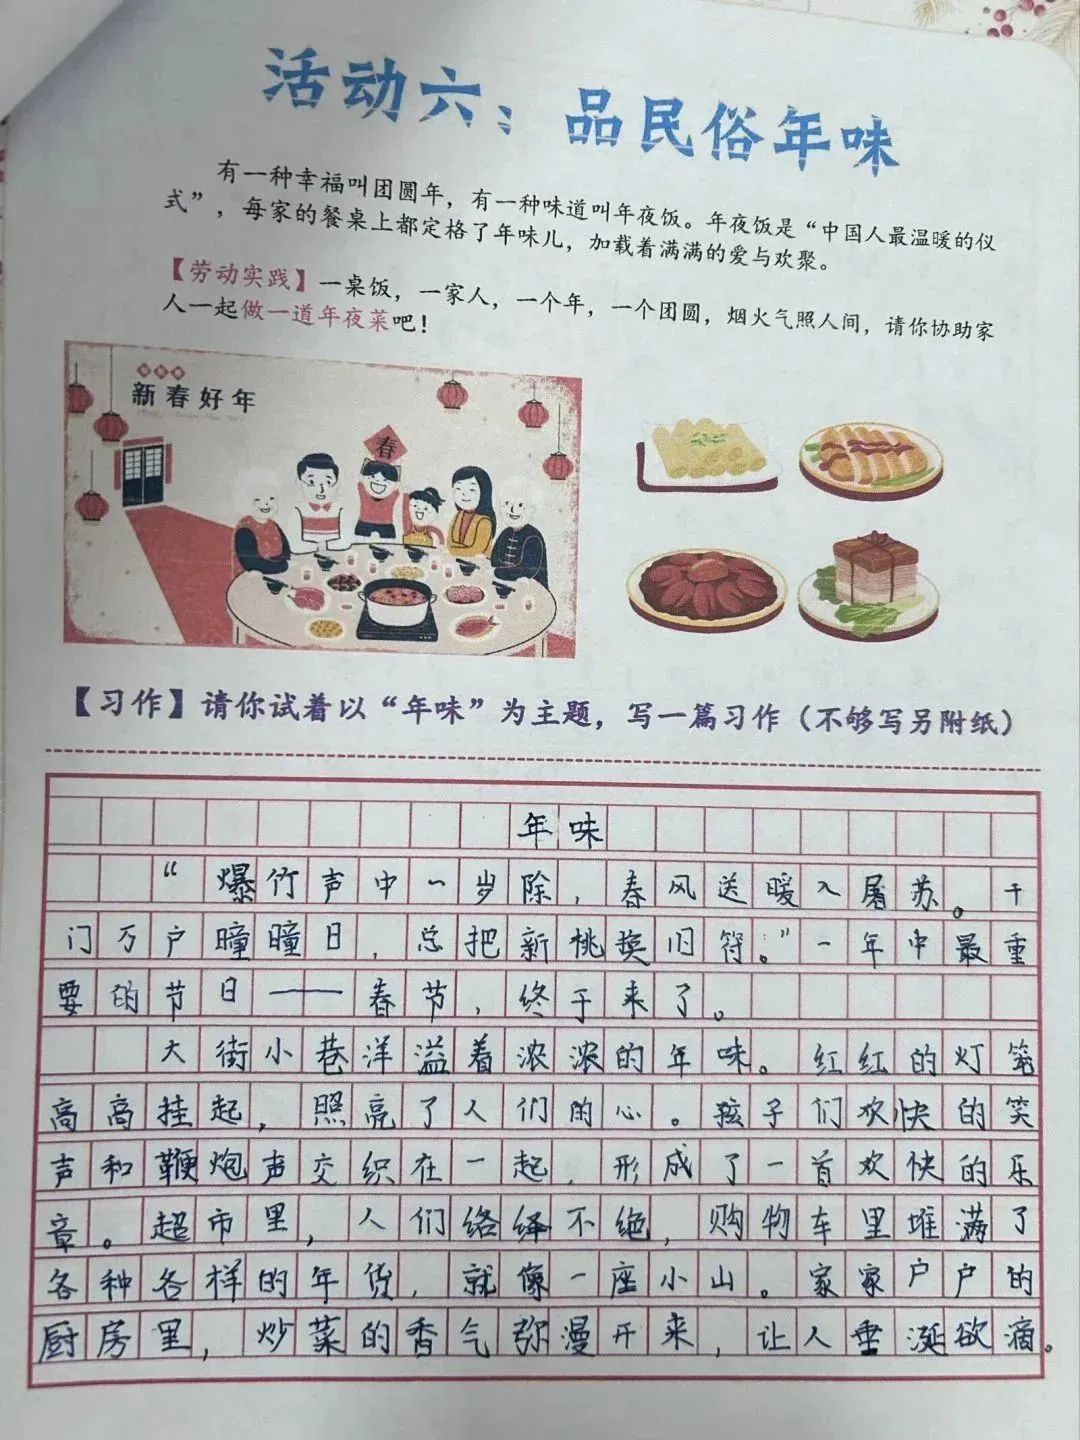 活动六：品民俗年味
有一种幸福叫团圆年，有一种味道叫年夜饭。年夜饭是“中国人最温暖的仪
式”，每家的餐桌上都定格了年味儿，加载着满满的爱与欢聚。
【劳动实践】一桌饭，一家人，一个年，一个团圆，烟火气照人间，请你协助家
人一起做一道年夜菜吧！
新春好年
春
【习作】请你试着以“年味”为主题，写一篇习作（不够写另附纸）
年味
“爆竹声中一岁除，春风送暖入屠苏。千
门万户曈曈日，总把新桃换旧符。”一年中最重
要的节日——春节，终于来了。
大街小巷洋溢着浓浓的年味。红红的灯笼
高高挂起，照亮了人们的心。孩子们欢快的笑
声和鞭炮声交织在一起，形成了一首欢快的乐
章。超市里，人们络绎不绝，购物车里堆满了
各种各样的年货，就像一座小山。家家户户的
厨房里，炒菜的香气弥漫开来，让人垂涎欲滴。